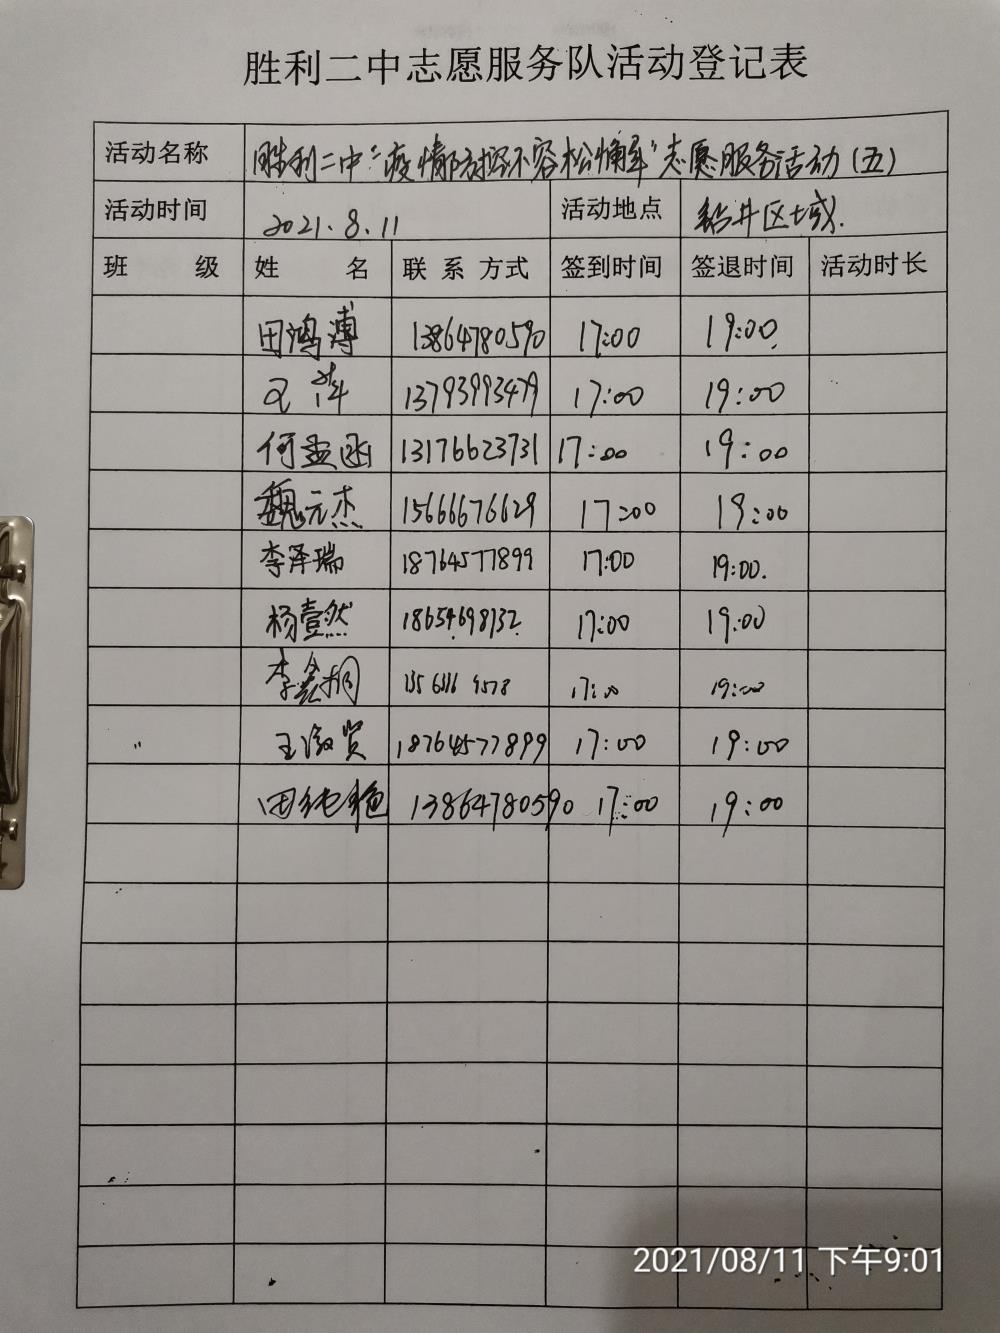 胜利二中志愿服务队活动登记表
活动名称 胜利二中“疫情防控不容松懈”志愿服务活动(五)
活动时间 2021.8.11 活动地点 钻井区域.
班 级 姓 名 联 系 方式 签到时间 签退时间 活动时长
田鸿溥 13864780590 17:00 19:00.
王 13793993479 17:00 19:00
何孟函 13176623731 17:00 19:00
魏元杰 15666676629 17:00 19:00
李泽瑞 18764577899 17:00 19:00.
杨壹然 18654698132. 17:00 19:00
李鑫桐 17:00 19:00
〃 王 贤 18764577899 17:00 19:00
田纯艳 13864780590 17:00 19:00
2021/08/11 下午9:01